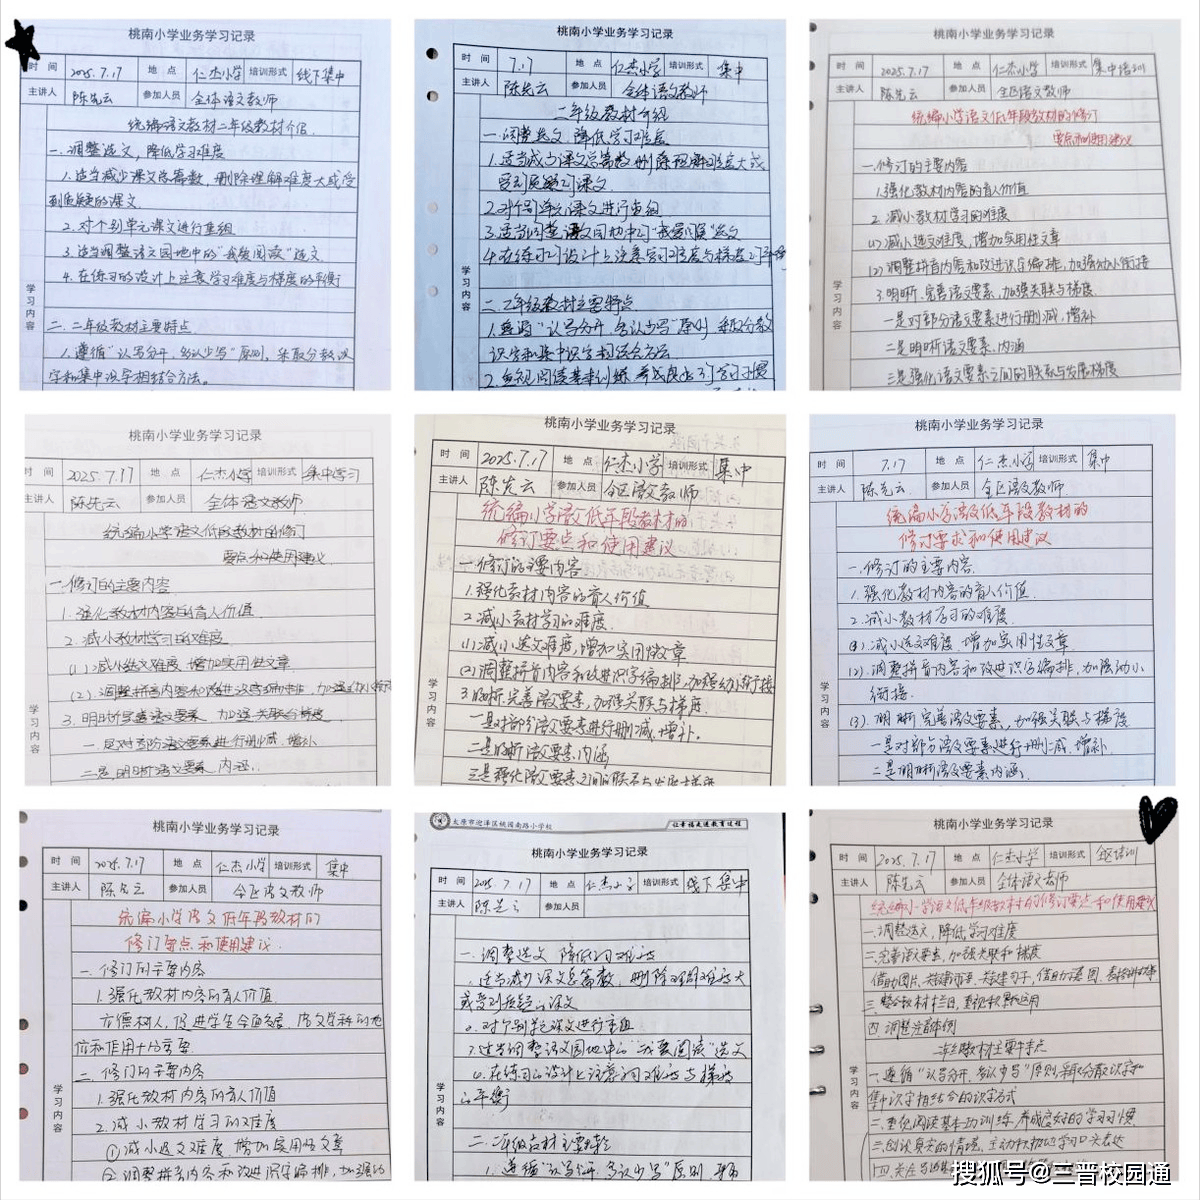 桃南小学业务学习记录
时 间 2025.7.17 地 点 仁杰小学 培训形式 线下集中
主讲人 陈先云 参加人员 全体语文教师
统编语文教材二年级教材介绍
一.调整选文,降低学习难度
1.适当减少课文总篇数,删除理解难度大或受
到质疑的课文.
2.对个别单元课文进行重组
3.适当调整语文园地中的"我爱阅读"选文
4.在练习的设计上注意学习难度与梯度的平衡
学习内容
二.二年级教材主要特点
1.遵循"认写分开,多认少写"原则,采取分散识
字和集中识字相结合方法。
桃南小学业务学习记录
时 间 7.17 地 点 仁杰小学 培训形式 集中
主讲人 陈先云 参加人员 全体语文教师
二年级教材介绍
一.调整选文 降低学习难度
1.适当减少课文总篇数,删除理解难度大或
受到质疑的课文.
2.对个别单元课文进行重组
3.适当调整语文园地中的"我爱阅读"选文
4.在练习的设计上注意学习难度与梯度的平衡
学习内容
二.二年级教材主要特点
1.遵循"认写分开,多认少写"原则 采取分散
识字和集中识字相结合方法
2.重视阅读基本功训练 养成良好的学习习惯
桃南小学业务学习记录
时 间 2025.7.17 地 点 仁杰小学 培训形式 集中培训
主讲人 陈先云 参加人员 全区语文教师
统编小学语文低年段教材的修订
要点和使用建议
一.修订的主要内容
1.强化教材内容的育人价值
2.减小教材学习的难度
(1)减小选文难度,增加实用性文章
(2)调整拼音内容和改进识字编排,加强幼小衔接
3.明晰、完善语文要素,加强关联与梯度.
学习内容
一是对部分语文要素进行删减,增补
二是明晰语文要素内涵
三是强化语文要素之间的联系与发展梯度
桃南小学业务学习记录
时 间 2025.7.17 地 点 仁杰小学 培训形式 集中学习
主讲人 陈先云 参加人员 全体语文教师
统编小学语文低段教材的修订
要点和使用建议
一.修订的主要内容
1.强化教材内容的育人价值
2.减小教材学习的难度
(1)减小选文难度 增加实用性文章
(2).调整拼音内容和改进识字编排,加强幼小衔接
3.明晰完善语文要素 加强关联与梯度
学习内容
一是对部分语文要素进行删减,增补
二是明晰语文要素 内涵.
桃南小学业务学习记录
时 间 2025.7.17 地 点 仁杰小学 培训形式 集中
主讲人 陈先云 参加人员 全区语文教师
统编小学语文低年段教材的
修订要点和使用建议
一.修订的主要内容
1.强化教材内容的育人价值
2.减小教材学习的难度.
(1)减小选文难度,增加实用性文章
(2)调整拼音内容和改进识字编排,加强幼小衔接
3.明晰、完善语文要素,加强关联与梯度.
学习内容
一是对部分语文要素进行删减,增补.
二是明晰语文要素内涵
三是强化语文要素之间的联系与发展梯度
桃南小学业务学习记录
时 间 7.17 地 点 仁杰小学 培训形式 集中
主讲人 陈先云 参加人员 全区语文教师
统编小学语文低年段教材的
修订要求和使用建议
一.修订的主要内容.
1.强化教材内容的育人价值.
2.减小教材学习的难度.
(1).减小选文难度 增加实用性文章
(2).调整拼音内容和改进识字编排,加强幼小
衔接.
(3).明晰完善语文要素,加强关联与梯度
学习内容
一是对部分语文要素进行删减,增补.
二是明晰语文要素内涵
桃南小学业务学习记录
时 间 2025.7.17 地 点 仁杰小学 培训形式 集中
主讲人 陈先云 参加人员 全区语文教师
统编小学语文低年段教材的
修订要点和使用建议.
一.修订的主要内容
1.强化教材内容的育人价值.
立德树人,促进学生全面发展,语文学科的地
位和作用十分重要.
二.修订的主要内容
学习内容
1.强化教材内容的育人价值
2.减小教材学习的难度
①减小选文难度 增加实用性文章
②调整拼音内容和改进识字编排,加强幼
太原市迎泽区桃园南路小学校
让幸福走进教育过程
桃南小学业务学习记录
时 间 2025.7.17 地 点 仁杰小学 培训形式 线下集中
主讲人 陈先云 参加人员
一.调整选文 降低学习难度
1.适当减少课文总篇数,删除理解难度大
或受到质疑的课文
2.对个别单元课文进行重组
3.适当调整语文园地中的"我爱阅读"选文
4.在练习的设计上注意学习难度与梯度
的平衡
学习内容
二.二年级教材主要特点
1.遵循"认写分开,多认少写"原则,采取
桃南小学业务学习记录
时 间 2025.7.17 地 点 仁杰小学 培训形式 全区培训
主讲人 陈先云 参加人员 全体语文老师
统编小学语文低年级教材的修订要点和使用建议
一.调整选文,降低学习难度
二.完善语文要素,加强关联和梯度
三.整合教材栏目,重视积累运用
四.调整注音体例
二年级教材主要特点
一.遵循"认写分开,多认少写"原则采取分散识字和
集中识字相结合的识字方式
学习内容
二.重视阅读基本功训练,养成良好的学习习惯
三.创设真实的情境,主动积极地学习口头表达
搜狐号@三晋校园通